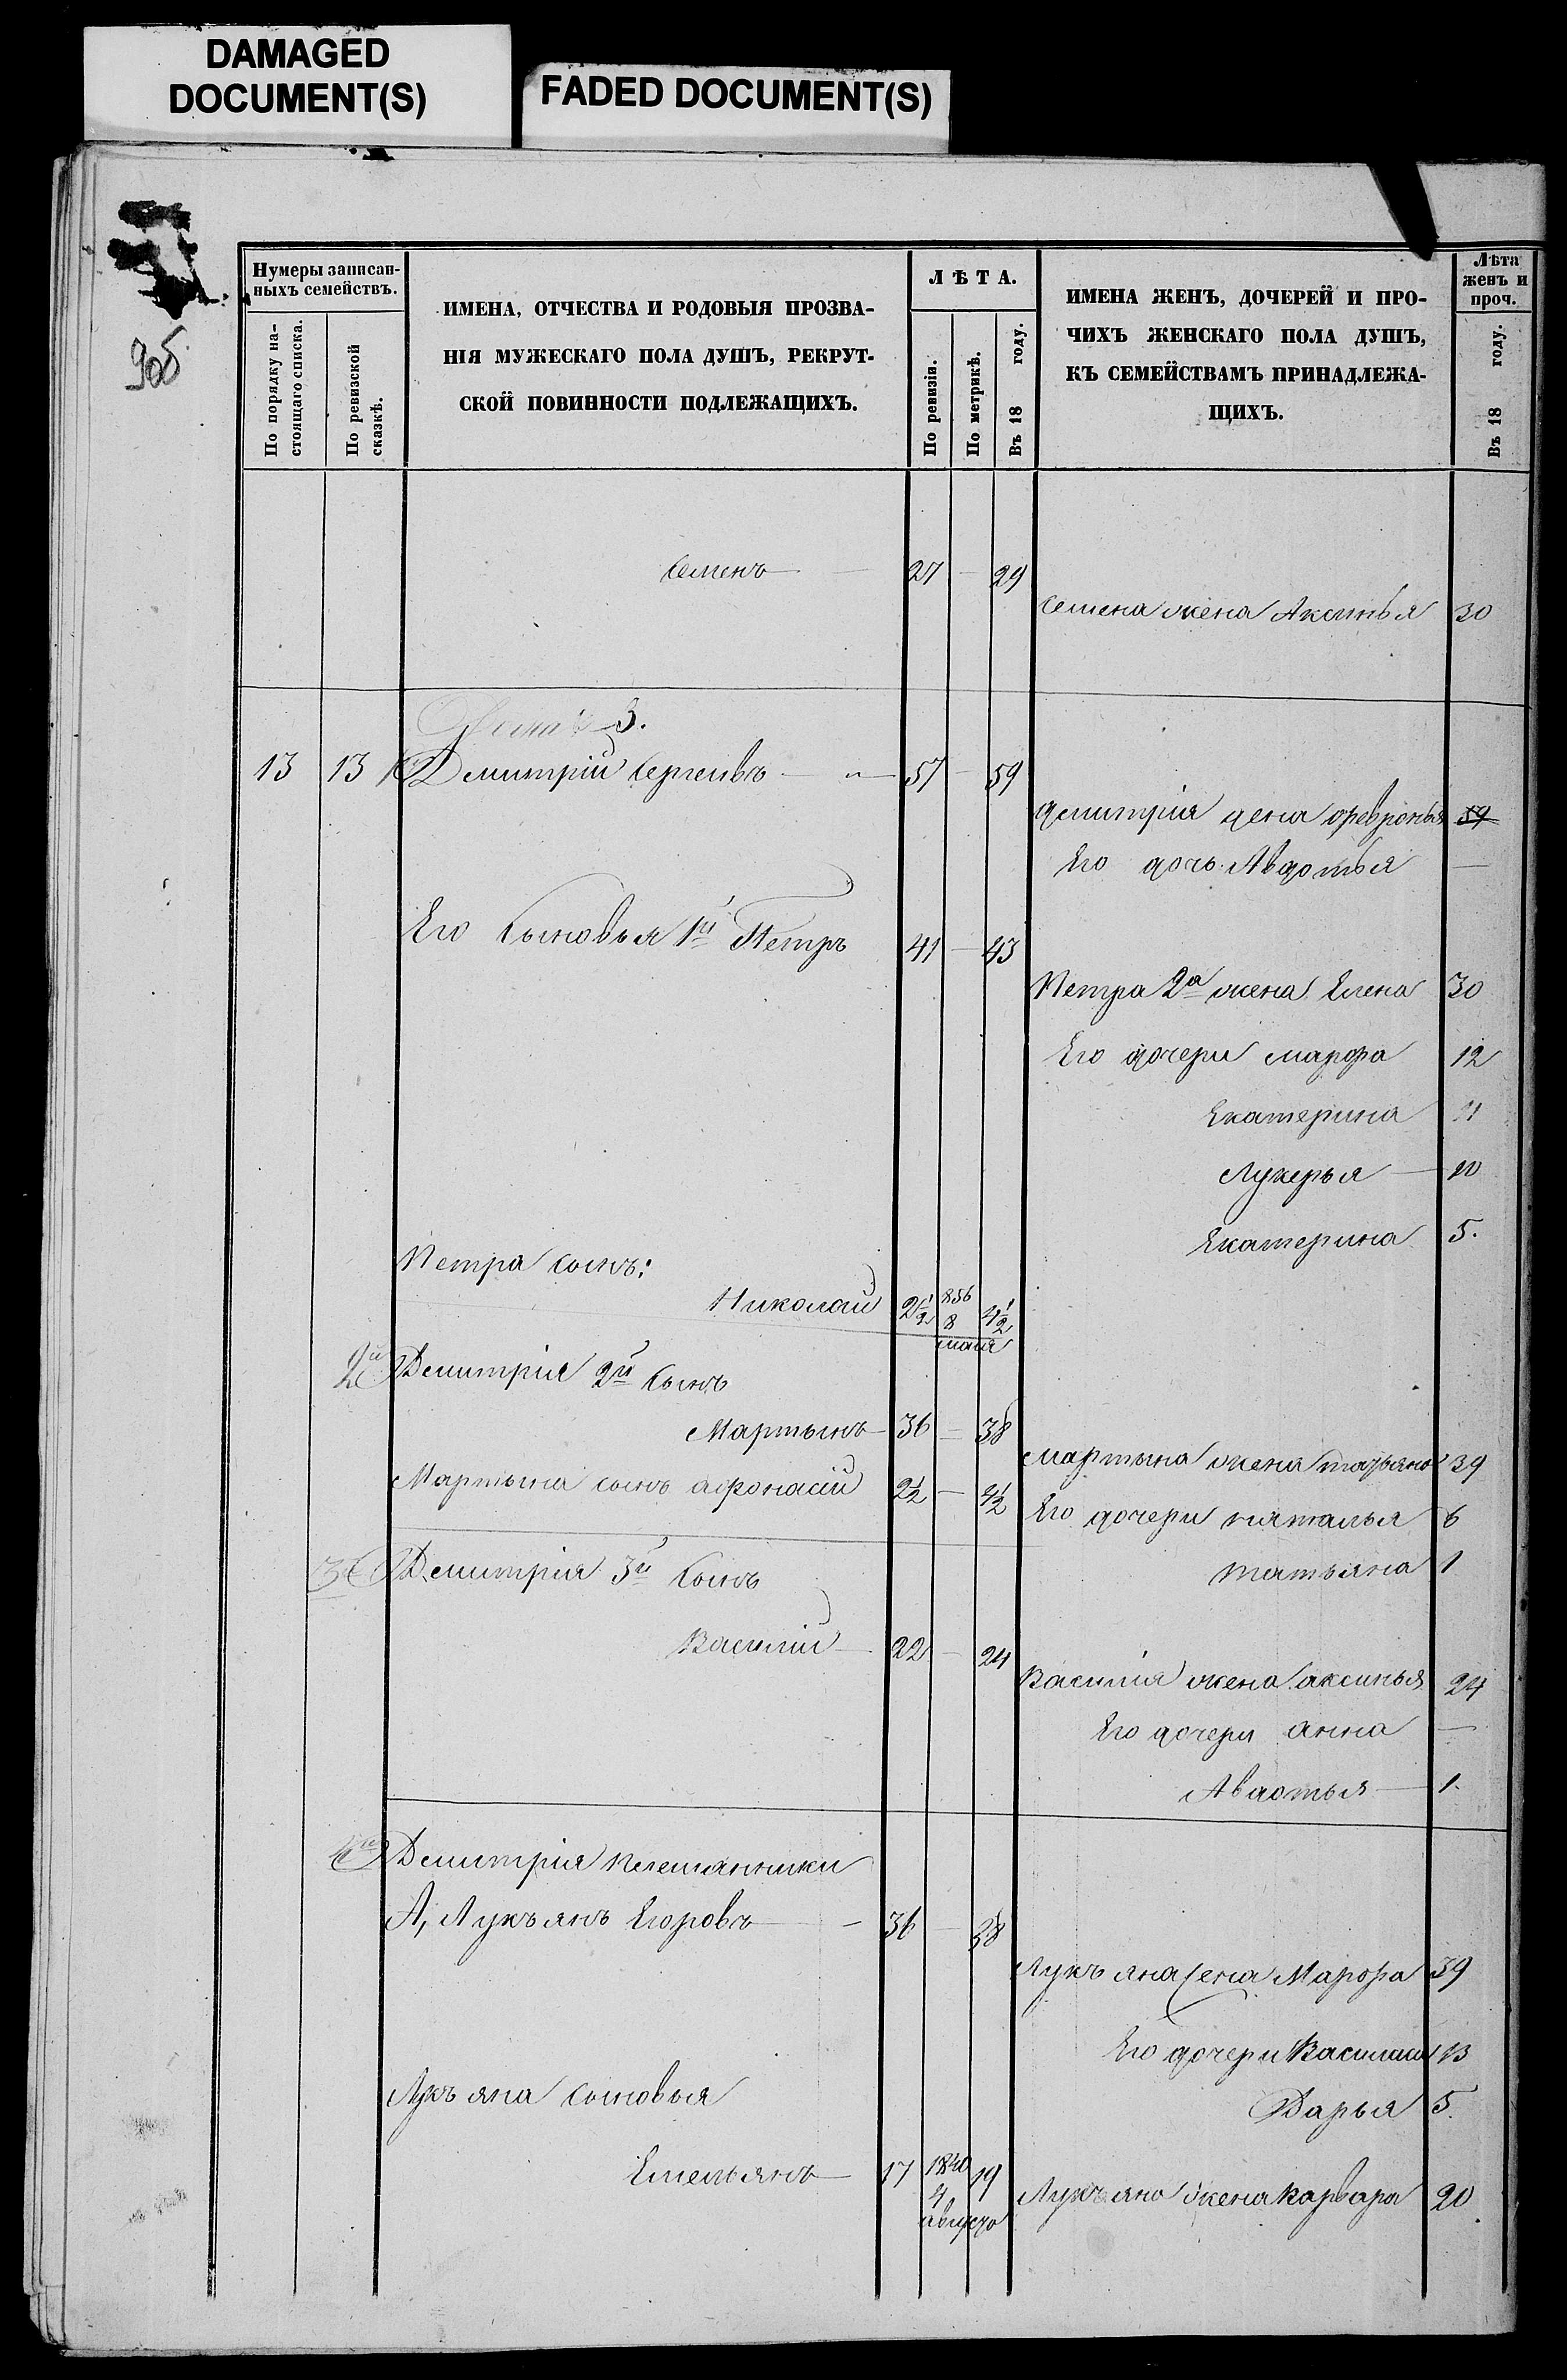 DAMAGED
DOCUMENT(S)
FADED DOCUMENT(S)
Нумеры записан-
ныхъ семействъ.
По порядку на-
стоящаго списка.
По ревизской
сказкѣ.
ИМЕНА, ОТЧЕСТВА И РОДОВЫЯ ПРОЗВА-
НІЯ МУЖЕСКАГО ПОЛА ДУШЪ, РЕКРУТ-
СКОЙ ПОВИННОСТИ ПОДЛЕЖАЩИХЪ.
ЛѢТА.
По ревизіи.
По метрикѣ.
Въ 18 году.
ИМЕНА ЖЕНЪ, ДОЧЕРЕЙ И ПРО-
ЧИХЪ ЖЕНСКАГО ПОЛА ДУШЪ,
КЪ СЕМЕЙСТВАМЪ ПРИНАДЛЕЖА-
ЩИХЪ.
Лѣта
женъ и
проч.
Въ 18 году.
Семенъ — 27 — 29
Семена жена Аксинья 30
3.
13 13 Демитрій Сергеивъ — 57 — 59
Демитрія жена
Его дочь Авдотья —
Его Сыновья 1й Петръ 41 — 43
Петра 2а жена Елена 30
Его дочери марфа 12
Екатерина 11
Лукерья — 10
Екатерина 5.
Петра сынъ:
Николай 2 1/2 856 4 1/2
8
мая
2й Демитрія 2й Сынъ
Мартынъ — 36 — 38
мартына жена 39
Мартына сынъ афонасій 2 1/2 — 4 1/2
Его дочери наталья 6
татьяна 1
3 Демитрія 3й Сынъ
Василій — 22 — 24
Василия жена аксинья 24
Его дочери анна —
Авдотья — 1.
Демитрія племянники
А, Лукъянъ Егоровъ — 36 — 38
Лукъяна жена Марфа 39
Его дочери 13
Лукъяна сыновья
Дарья 5.
Емельянъ — 17 1840 19
4
Лукъяна жена Варвара 20